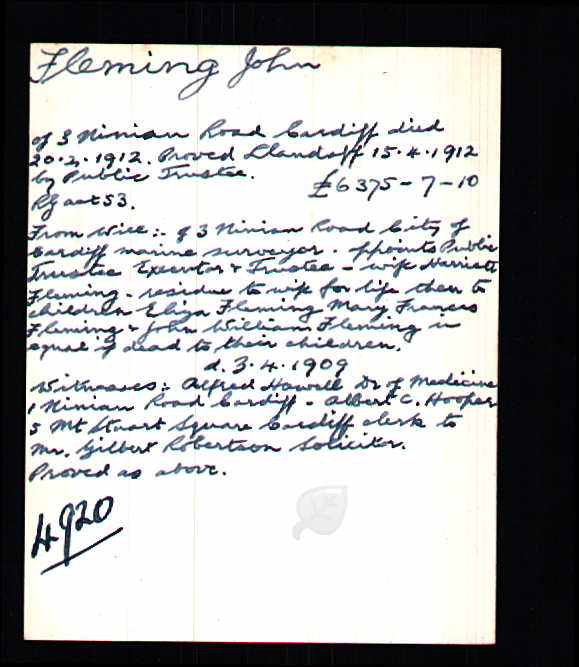 Fleming John
of 3 Ninian Road Cardiff died
20.2.1912. Proved Llandaff 15.4.1912
by Public Trustee.
£6375-7-10
53.
From Will:- of 3 Ninian Road City of
Cardiff marine surveyor. Appoints Public
Trustee Executor & Trustee - wife Harriett
Fleming - residue to wife for life then to
children Eliza Fleming Mary Frances
Fleming & John William Fleming in
equal if dead to their children.
d. 3.4.1909
Witnesses:- Alfred Howell Dr of Medicine
1 Ninian Road Cardiff - Albert C. Hooper
5 Mt Stuart Square Cardiff clerk to
Mr. Gilbert Robertson Solicitor.
Proved as above.
4920